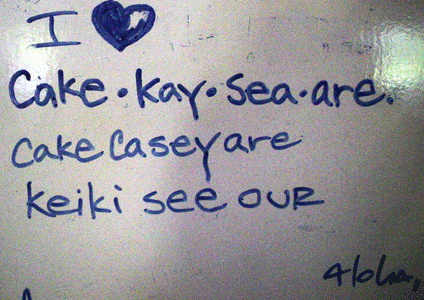 I ♥
Cake•kay•Sea•are.
Cake Casey are
keiki see our
Aloha,